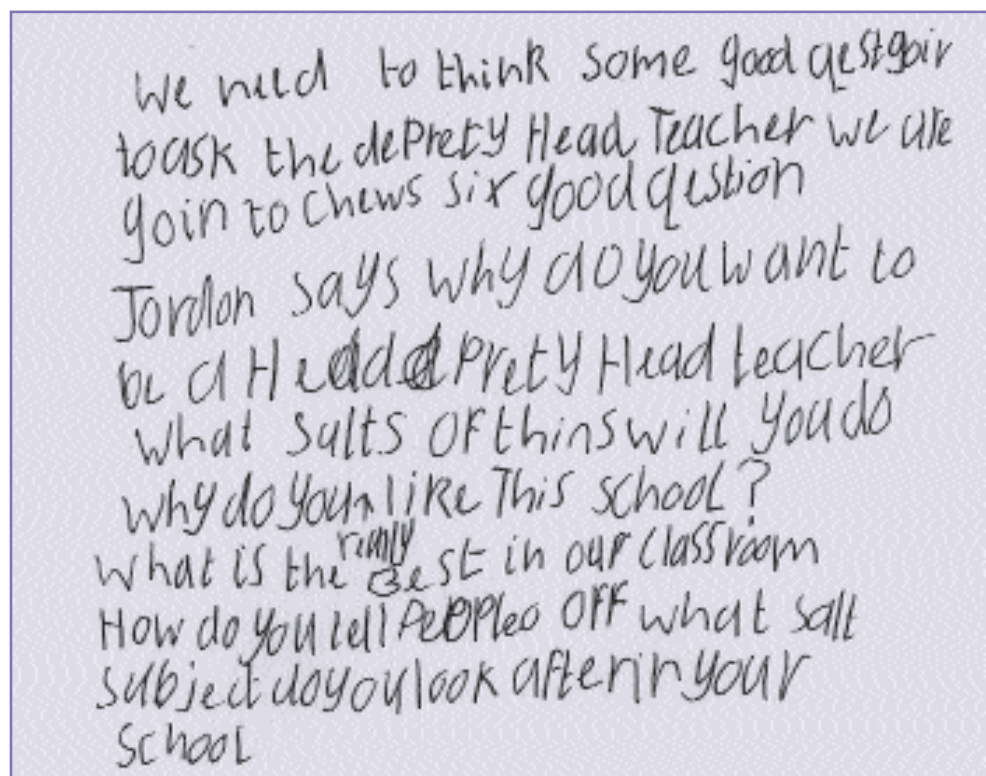 We need to think some good qestgoir
to ask the dePrety Head Teacher we are
goin to Chews six good qestion
Jordon says why do you want to
be a Head dPrety Head teacher
what Salts OF thins will you do
why do you like This school?
what is the really Best in our classroom
How do you tell PeOPleo OFF what salt
subject do you look after in your
school